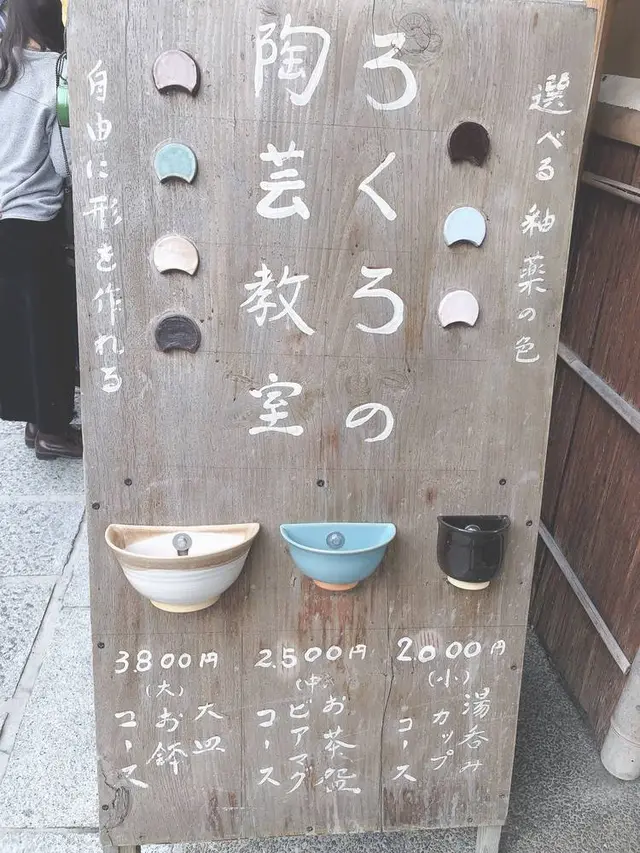 選べる釉薬の色
ろくろの
陶芸教室
自由に形を作れる
2.000円
(小)
湯呑み
カップ
コース
2.500円
(中)
お茶碗
ビアマグ
コース
3.800円
(大)
大皿
お鉢
コース